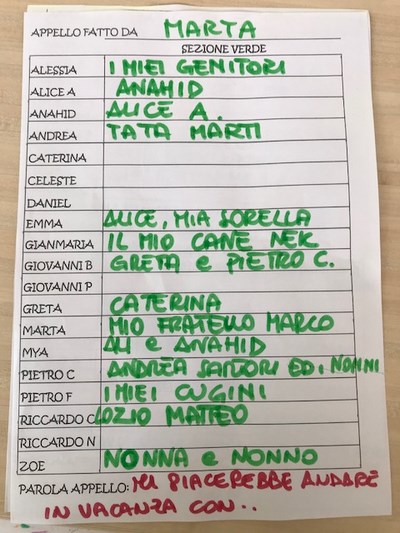 APPELLO FATTO DA MARTA
SEZIONE VERDE
ALESSIA I MIEI GENITORI
ALICE A ANAHID
ANAHID ALICE A.
ANDREA TATA MARTI
CATERINA
CELESTE
DANIEL
EMMA ALICE, MIA SORELLA
GIANMARIA IL MIO CANE NEK
GIOVANNI B GRETA e PIETRO C.
GIOVANNI P
GRETA CATERINA
MARTA MIO FRATELLO MARCO
MYA ALI e ANAHID
PIETRO C ANDREA SARTORI ED I NONNI
PIETRO F I MIEI CUGINI
RICCARDO C LO ZIO MATTEO
RICCARDO N
ZOE NONNA e NONNO
PAROLA APPELLO: MI PIACEREBBE ANDARE
IN VACANZA CON..